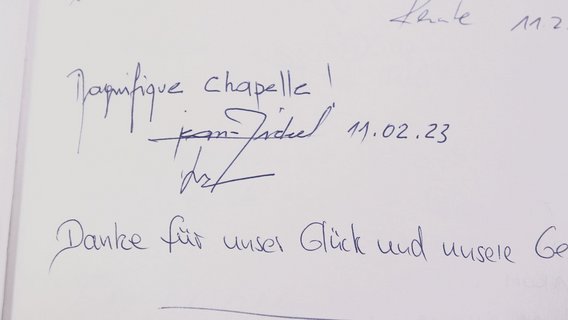 11.2
Magnifique chapelle !
Jean-Michel 11.02.23
Danke für unser Glück und unsere Ge